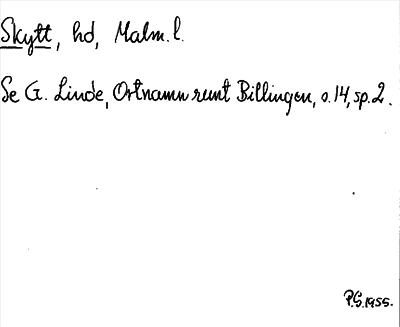 Skytt, hd, Malm. l.
Se G. Linde, Ortnamn runt Billingen, s. 14, sp. 2.
P.G. 1955.